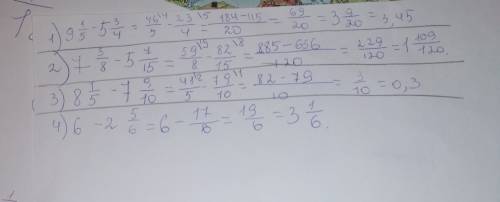 1) 9 1/5 - 5 3/4 = 46/5 \4 - 23/4 \5 = 184-115/20 = 69/20 = 3 9/20 = 3,45
2) 7 3/8 - 5 7/15 = 59/8 \15 - 82/15 \8 = 885-656/120 = 229/120 = 1 109/120.
3) 8 1/5 - 7 9/10 = 41/5 \2 - 79/10 \1 = 82-79/10 = 3/10 = 0,3
4) 6 - 2 5/6 = 6 - 17/6 = 19/6 = 3 1/6.